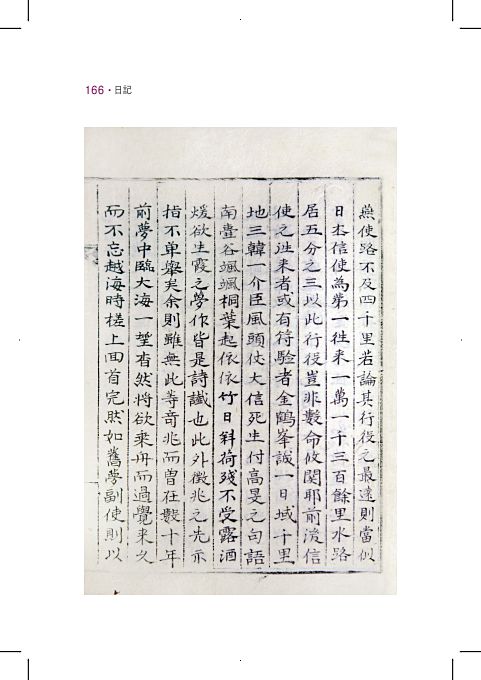 166·日記
燕使路不及四千里若論其行役之最遠則當以
日本信使爲第一徃来一萬一千三百餘里水路
居五分之三以此行役豈非數命攸関耶前後信
使之徃来者或有符驗者金鶴峯誠一日域千里
地三韓一介臣風頭仗大信死生付高旻之句語
南壷谷颯颯桐葉起依依竹日斜荷殘不受露酒
煖欲生霞之夢作皆是詩讖也此外徵兆之先示
指不单擧矣余則雖無此等奇兆而曽在數十年
前夢中臨大海一望杳然将欲乘舟而過覺来久
而不忘越海時槎上回首完然如舊夢副使則以